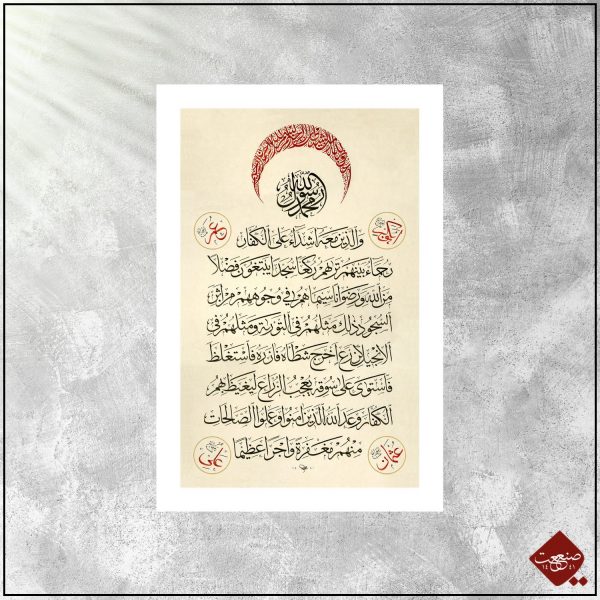 محمد رسول الله
أبو بكر
عمر
وَالَّذِينَ مَعَهُ أَشِدَّاءُ عَلَى الْكُفَّارِ
رُحَمَاءُ بَيْنَهُمْ تَرَاهُمْ رُكَّعًا سُجَّدًا يَبْتَغُونَ فَضْلًا
مِنَ اللَّهِ وَرِضْوَانًا سِيمَاهُمْ فِي وُجُوهِهِمْ مِنْ أَثَرِ
السُّجُودِ ذَلِكَ مَثَلُهُمْ فِي التَّوْرَيةِ وَمَثَلُهُمْ فِي
الْإِنْجِيلِ كَزَرْعٍ أَخْرَجَ شَطْأَهُ فَآزَرَهُ فَاسْتَغْلَظَ
فَاسْتَوَى عَلَى سُوقِهِ يُعْجِبُ الزُّرَّاعَ لِيَغِيظَ بِهِمُ
الْكُفَّارَ وَعَدَ اللَّهُ الَّذِينَ آمَنُوا وَعَمِلُوا الصَّالِحَاتِ
مِنْهُمْ مَغْفِرَةً وَأَجْرًا عَظِيمًا
عثمان
علي